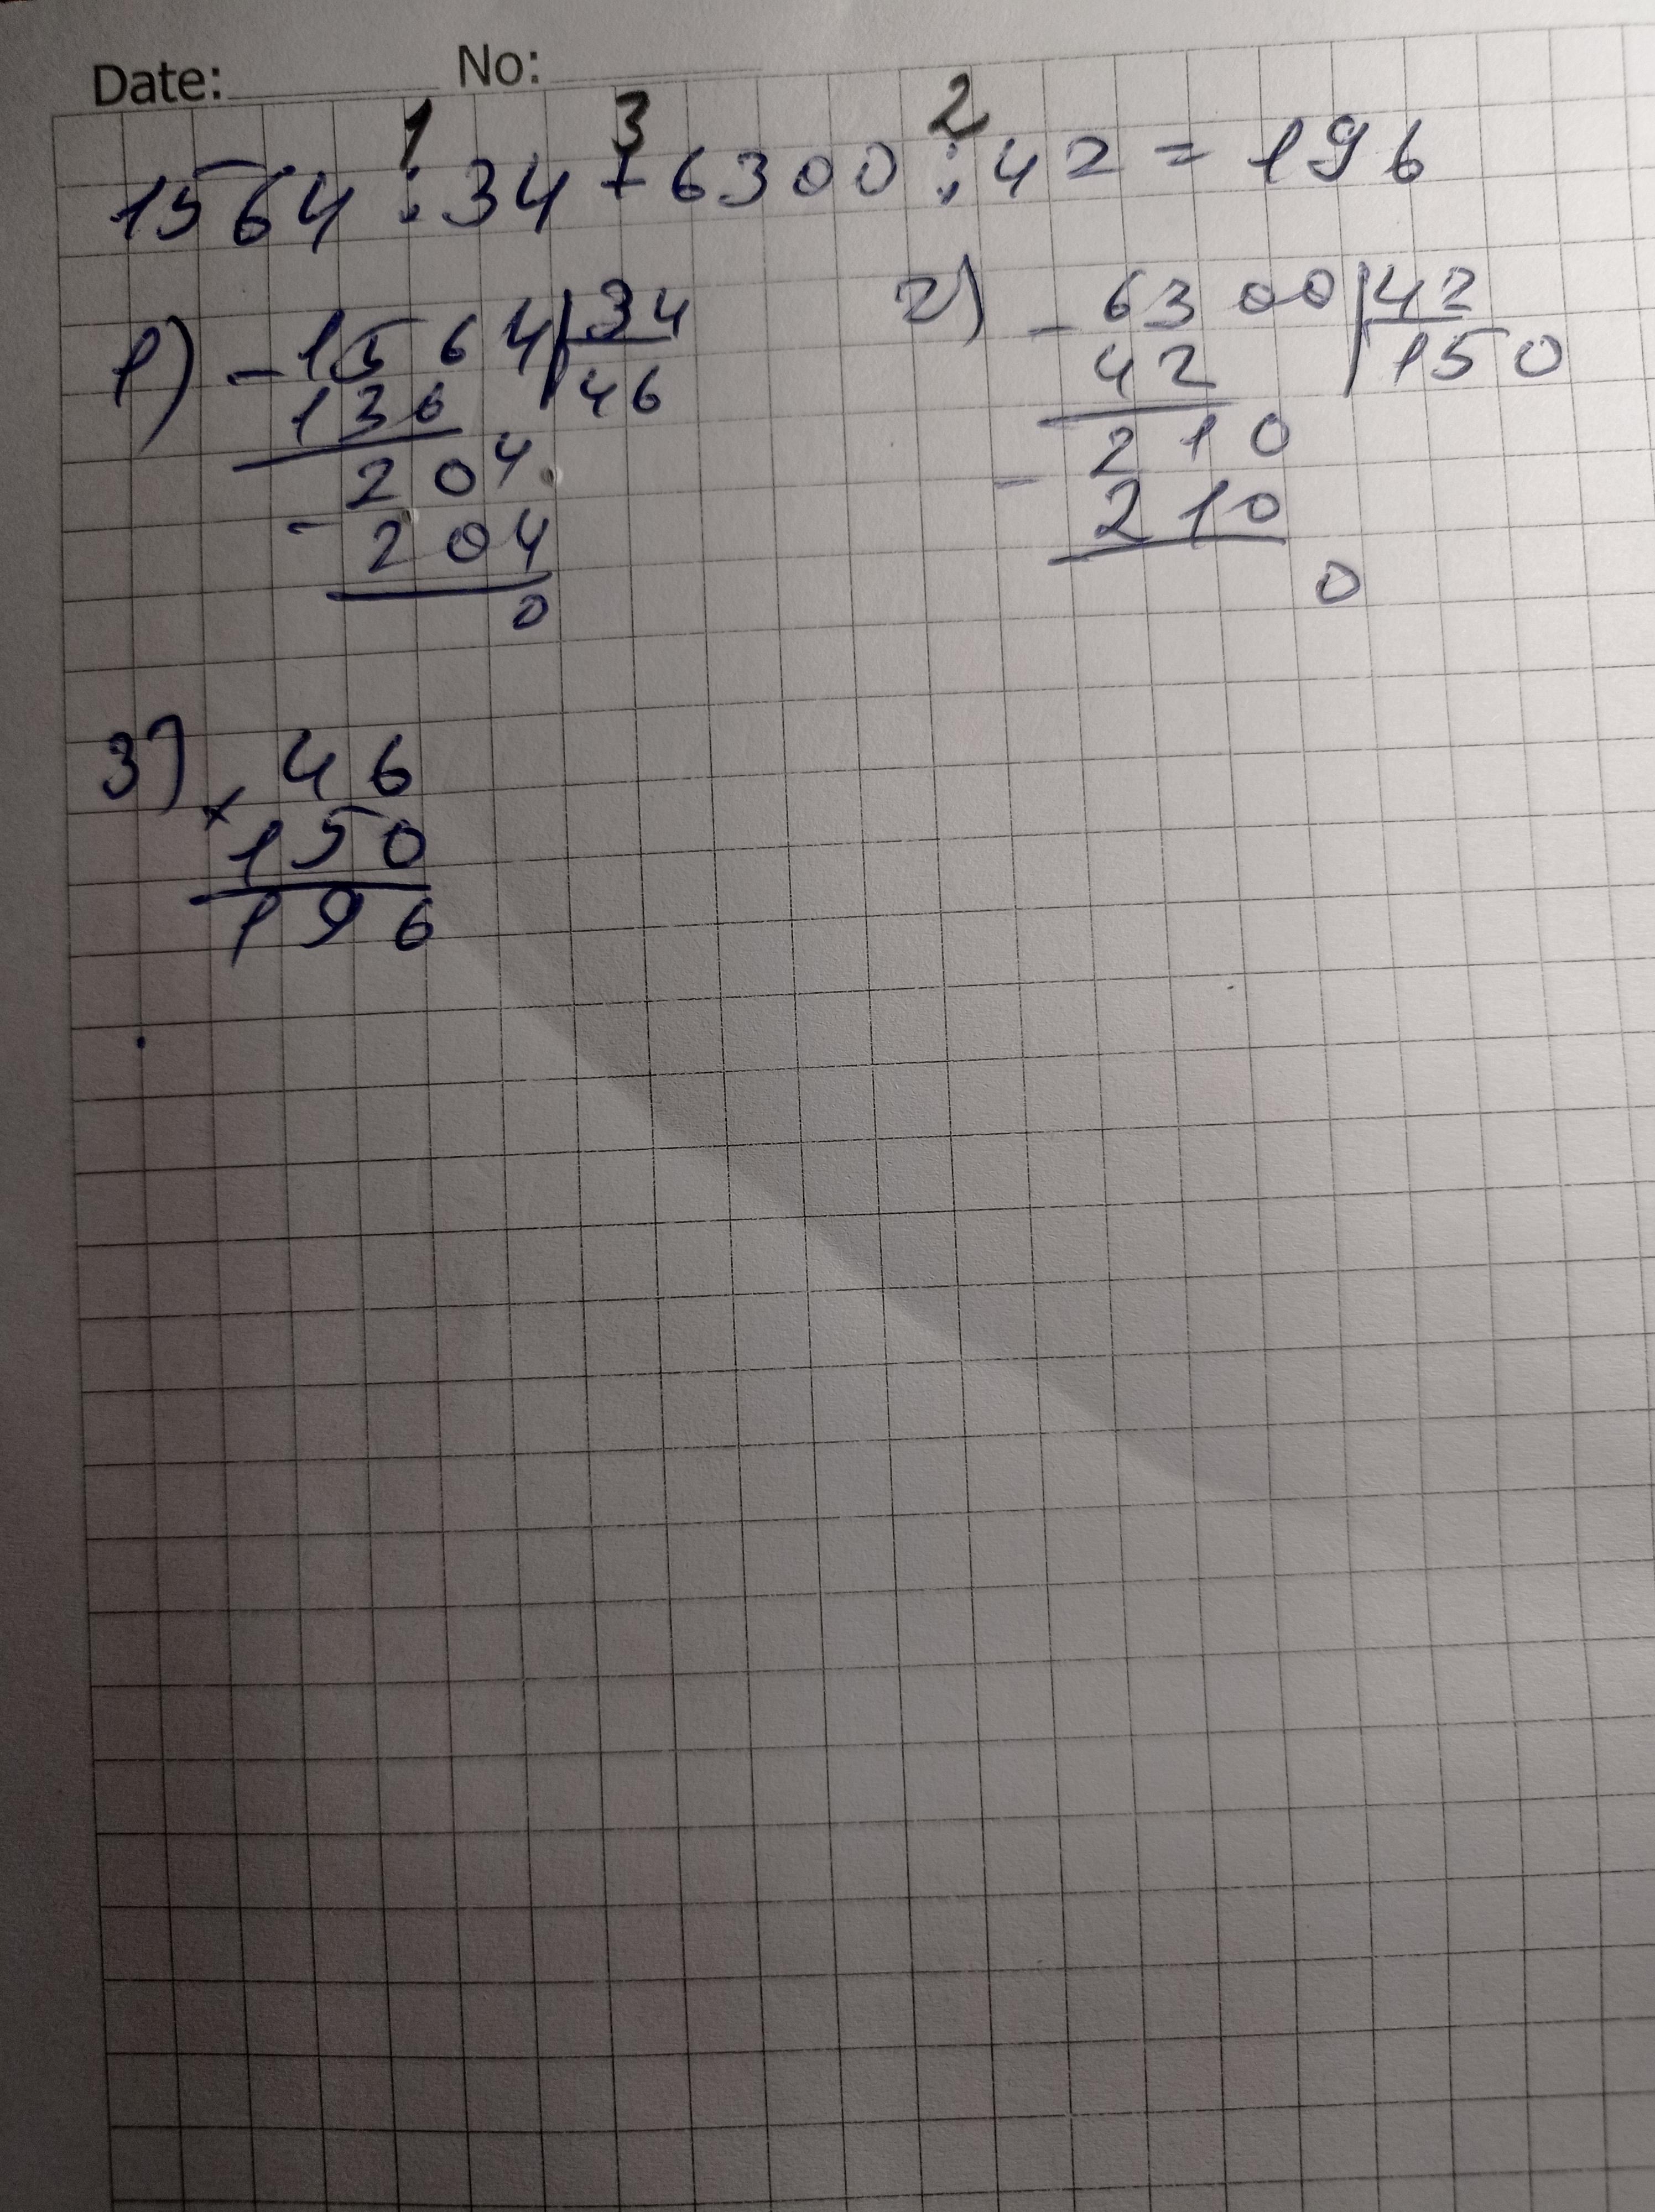 Date: No:
1 3 2
1564 : 34 + 6300 : 42 = 196
1) - 1564 | 34
136 46
204
- 204
0
2) - 6300 | 42
42 150
210
- 210
0
3) + 46
150
196